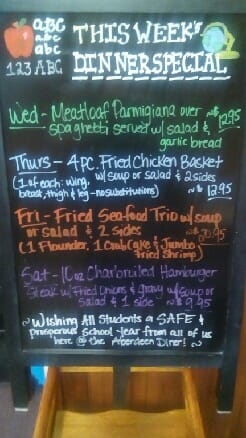 aBC
abc
abc
123 ABC
THIS WEEK's
DINNER SPECIAL
Wed - Meatloaf Parmigiana over
spaghetti served w/ salad &
garlic bread
~$12.95
Thurs - 4 pc. Fried Chicken Basket
(1 of each: wing, w/ soup or salad & 2 sides
breast, thigh & leg - no substitutions) ~$12.95
Fri - Fried Seafood Trio w/ soup
or salad & 2 sides
(1 Flounder, 1 Crab Cake & Jumbo
Fried Shrimp)
Sat - 10oz Charbroiled Hamburger
Steak w/ Fried Onions & gravy w/ soup or
Salad & 1 side ~$9.95
~Wishing All Students a SAFE &
Prosperous School Year from all of us
here @ the Aberdeen Diner! ~